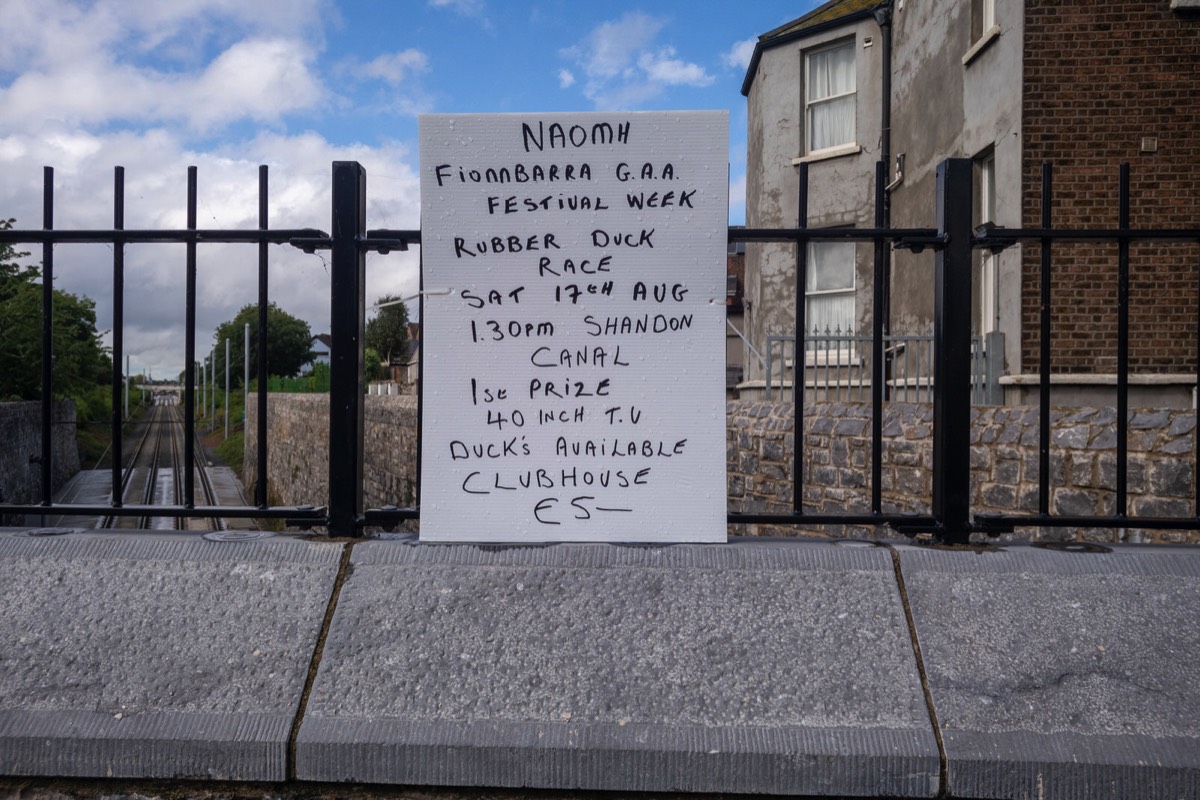 NAOMH
FIONNBARRA G.A.A.
FESTIVAL WEEK
RUBBER DUCK
RACE
SAT 17TH AUG
1.30pm SHANDON
CANAL
1st PRIZE
40 INCH T.V
DUCK'S AVAILABLE
CLUBHOUSE
€5—